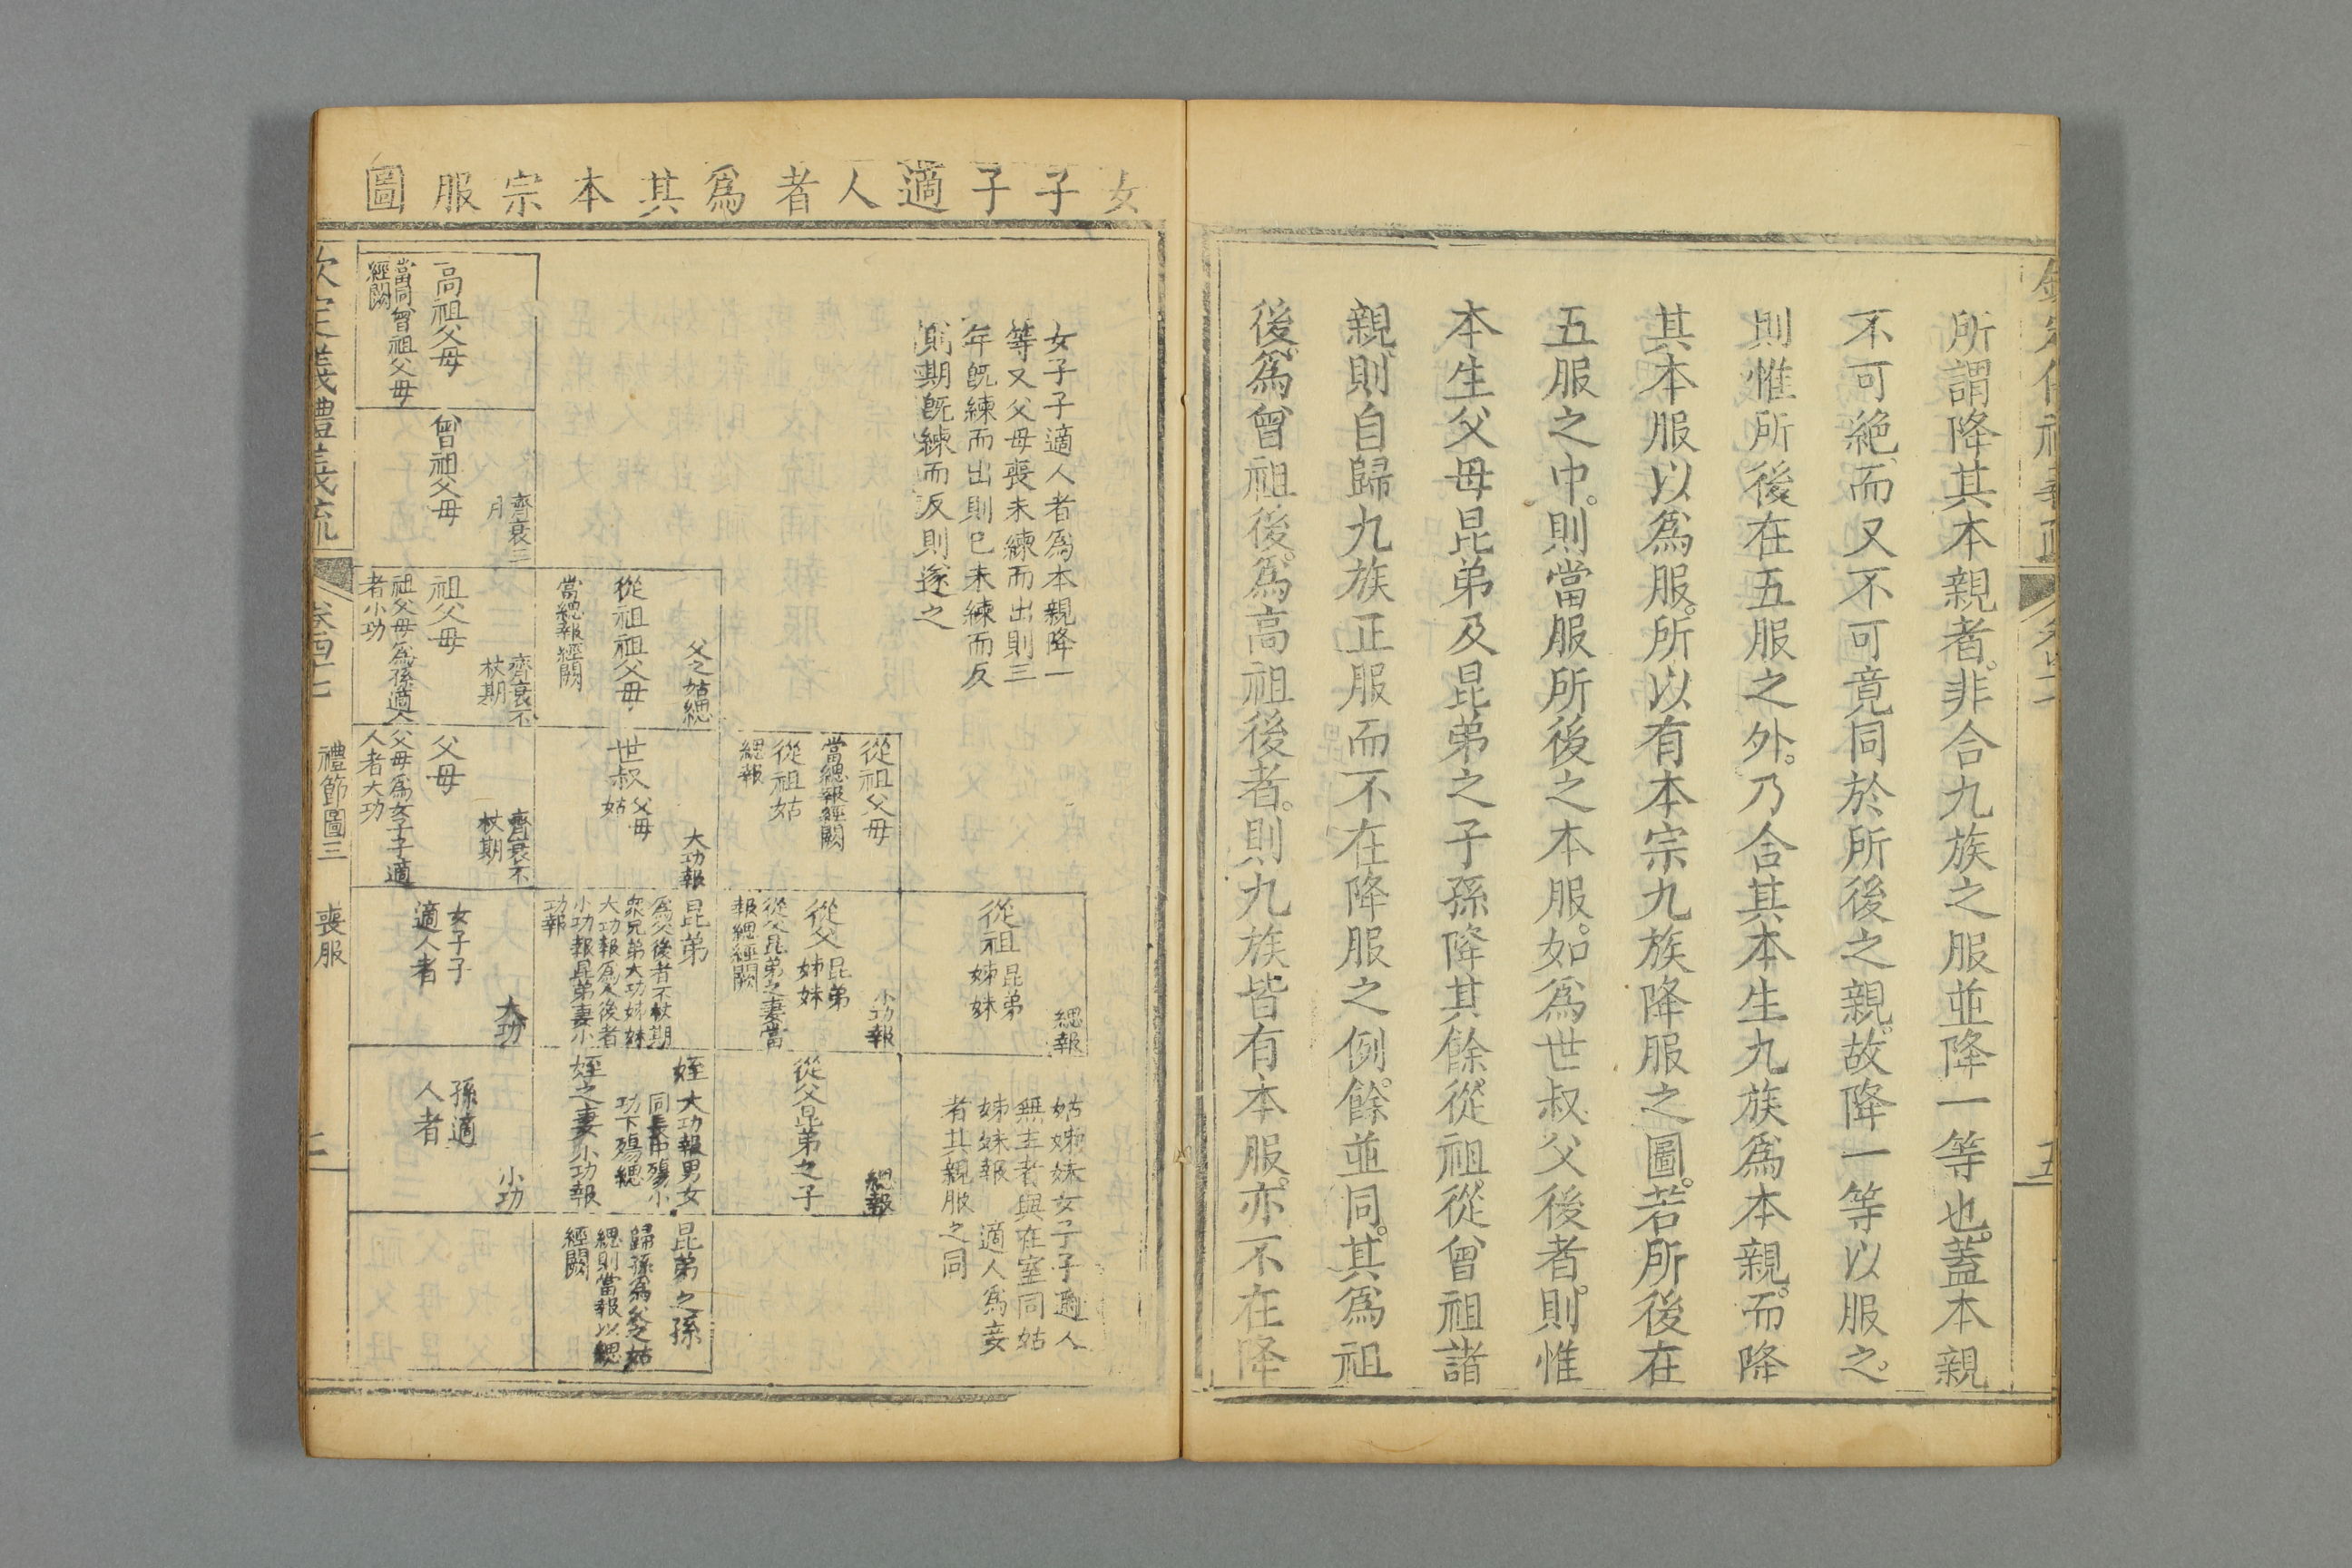 所謂降其本親者。非合九族之服並降一等也。蓋本親
不可絶、而又不可竟同於所後之親。故降一等以服之。
則惟所後在五服之外。乃合其本生九族爲本親。而降
其本服以爲服。所以有本宗九族降服之圖。若所後在
五服之中。則當服所後之本服。如爲世叔父後者。則惟
本生父母昆弟及昆弟之子孫降其餘從祖從曾祖諸
親、則自歸九族正服而不在降服之例。餘並同。其爲祖
後、爲曾祖後。爲高祖後者。則九族皆有本服。亦不在降
女子子適人者爲其本宗服圖
女子子適人者爲本親降一
等又父母喪未練而出則三
年既練而出則已未練而反
則期既練而反則遂之
從祖昆弟姊妹
緦報
姑姊妹女子子適人
無主者與在室同姑
姊妹報 適人爲妾
者其親服之同
從祖父母
當緦報經闕
從祖姑
緦報
從父昆弟姊妹
小功報
從父昆弟之妻當
報緦經闕
從父昆弟之子
緦報
父之姑緦
從祖祖父母
當緦報經闕
世叔父母姑
大功報
昆弟
爲父後者不杖期
衆兄弟大功姊妹
大功報爲人後者
小功報昆弟妻小
功報
姪 大功報男女
同長中殤小
功下殤緦
姪之妻小功報
昆弟之孫
歸孫爲父之姑
緦則當報以緦
經闕
高祖父母
當同曾祖父母
經闕
曾祖父母
齊衰三
月
祖父母
齊衰不
杖期
祖父母爲孫適人
者小功
父母
齊衰不
杖期
父母爲女子子適
人者大功
女子子
適人者
大功
孫適
人者
小功
欽定義禮義疏
卷四十七
禮節圖三
喪服